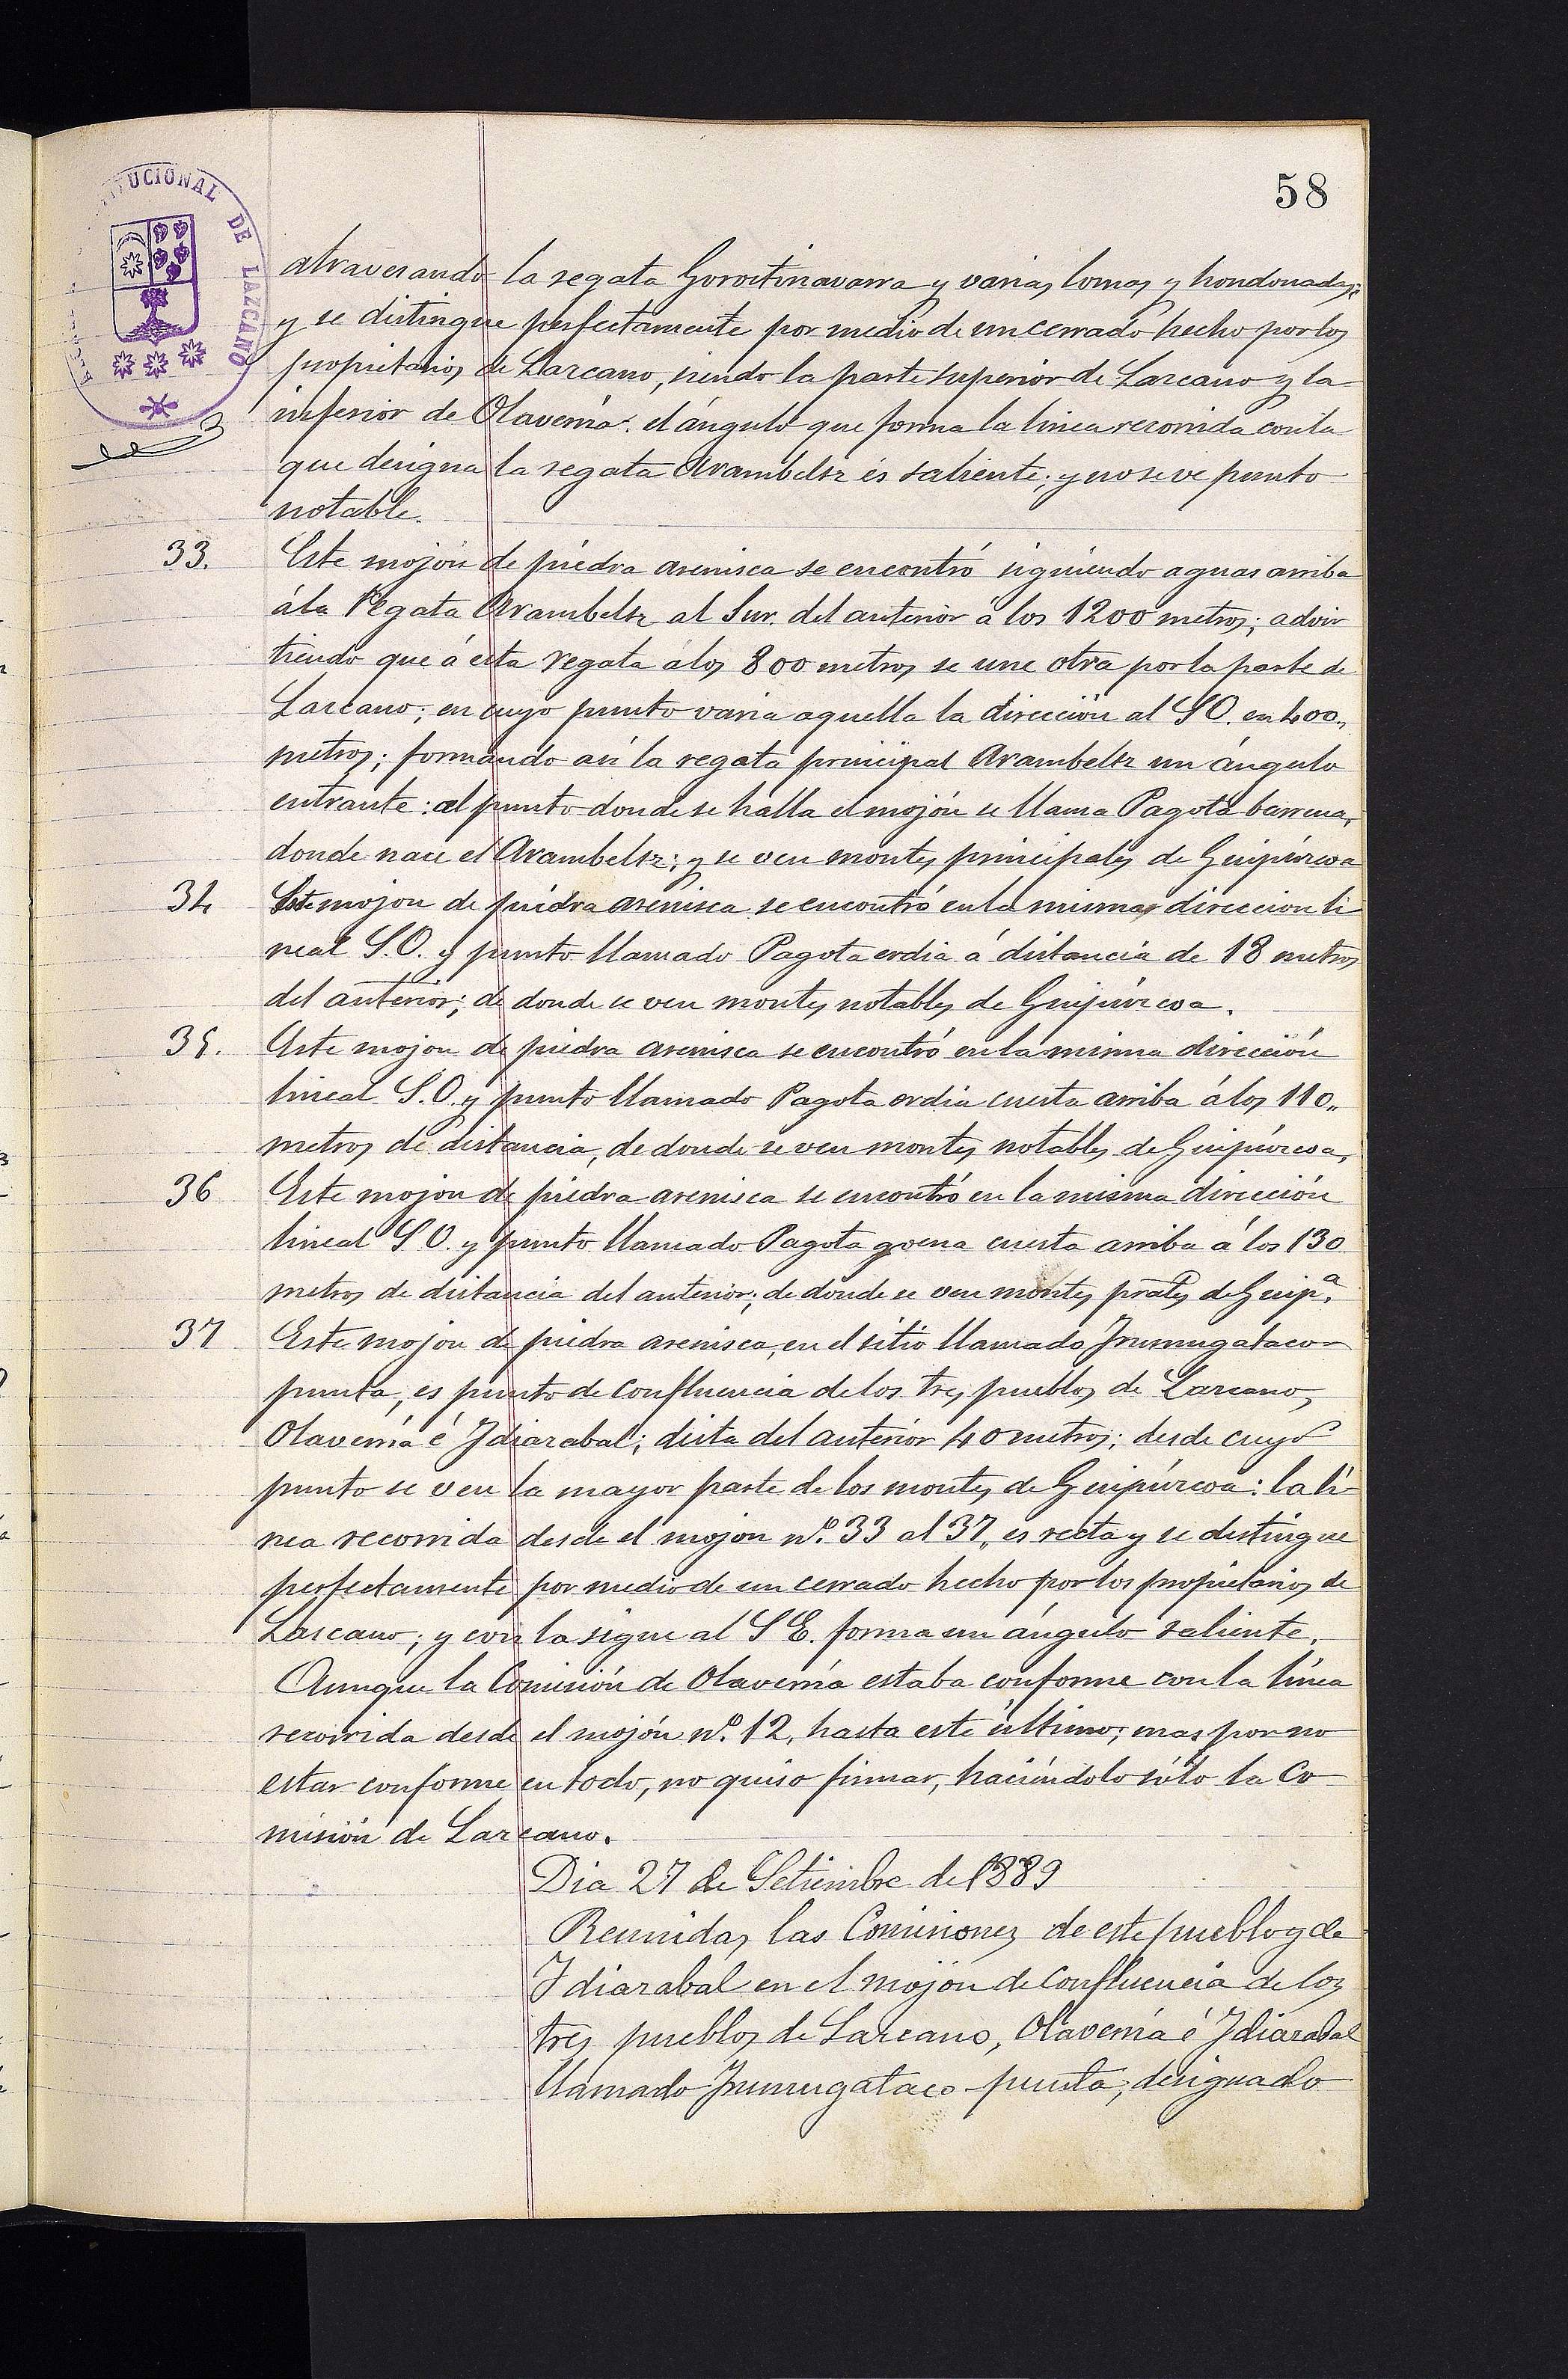 58
TUCIONAL DE LAZCANO
atravesando la regata Gorostinavarra y varias lomas y hondonadas;
y se distingue perfectamente por medio de un cerrado hecho por los
propietarios de Lazcano, siendo la parte superior de Lazcano y la
inferior de Olaverria. el ángulo que forma la linea recorrida con la
que designa la regata Arambeltz és saliente; y no se ve punto
notable.
33. Este mojón de piedra arenisca se encontró siguiendo aguas arriba
á la regata Arambeltz al Sur. del anterior á los 1200 metros; advir
tiendo que á esta regata á los 800 metros se une otra por la parte de
Lazcano; en cuyo punto varia aquella la dirección al SO. en 400,,
metros; formando asi la regata principal Arambeltz un ángulo
entrante: el punto donde se halla el mojón se llama Pagota barrena,
donde nace el Arambeltz; y se ven montes principales de Guipúzcoa
34 Este mojon de piedra arenisca se encontró en la misma direccion li
neal S.O. y punto llamado Pagota erdia á distancia de 18 metros
del anterior; de donde se ven montes notables de Guipúzcoa.
35. Este mojon de piedra arenisca se encontró en la misma dirección
lineal S.O. y punto llamado Pagota erdia cuesta arriba á los 110,,
metros de distancia, de donde se ven montes notables de Guipúzcoa,
36 Este mojon de piedra arenisca se encontró en la misma dirección
lineal S O. y punto llamado Pagota goena cuesta arriba á los 130
metros de distancia del anterior; de donde se ven montes prales de Guipª.
37 Este mojón de piedra arenisca, en el sitio llamado Irumugataco-
punta, es punto de confluencia de los tres pueblos de Lazcano,
Olaverria é Idiazabal; dista del anterior 40 metros; desde cuyo
punto se ven la mayor parte de los montes de Guipúzcoa: la li-
nea recorrida desde el mojon nº. 33 al 37,, es recta y se distingue
perfectamente por medio de un cerrado hecho por los propietarios de
Lazcano; y con la sigue al S E. forma un ángulo saliente.
Aunque la Comisión de Olaverría estaba conforme con la línea
recorrida desde el mojón nº. 12, hasta este último; mas por no
estar conforme en todo, no quiso firmar, haciéndolo sólo la Co-
misión de Lazcano.
Dia 27 de Setiembre de 1889
Reunidas las Comisiones de este pueblo y de
Idiazabal en el mojón de confluencia de los
tres pueblos de Lazcano, Olaverría é Idiazabal
llamado Irumugataco-punta, designado